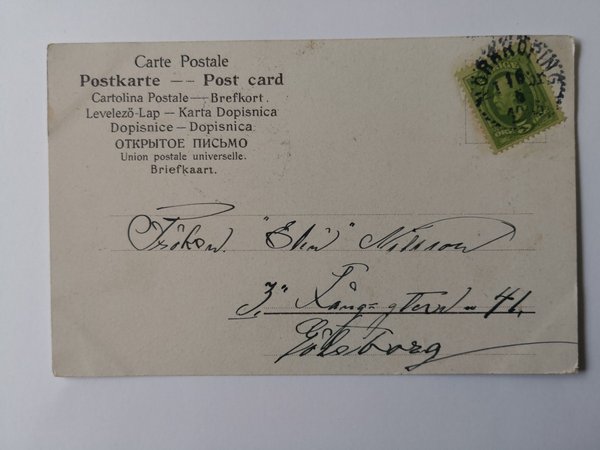 Carte Postale
Postkarte — Post card
Cartolina Postale — Brefkort.
Levelezö-Lap — Karta Dopisnica
Dopisnice — Dopisnica
ОТКРЫТОЕ ПИСЬМО
Union postale universelle.
Briefkaart.
NORRKÖPING
Fröken "Elin" Nilsson
3" Långgatan 41.
Göteborg